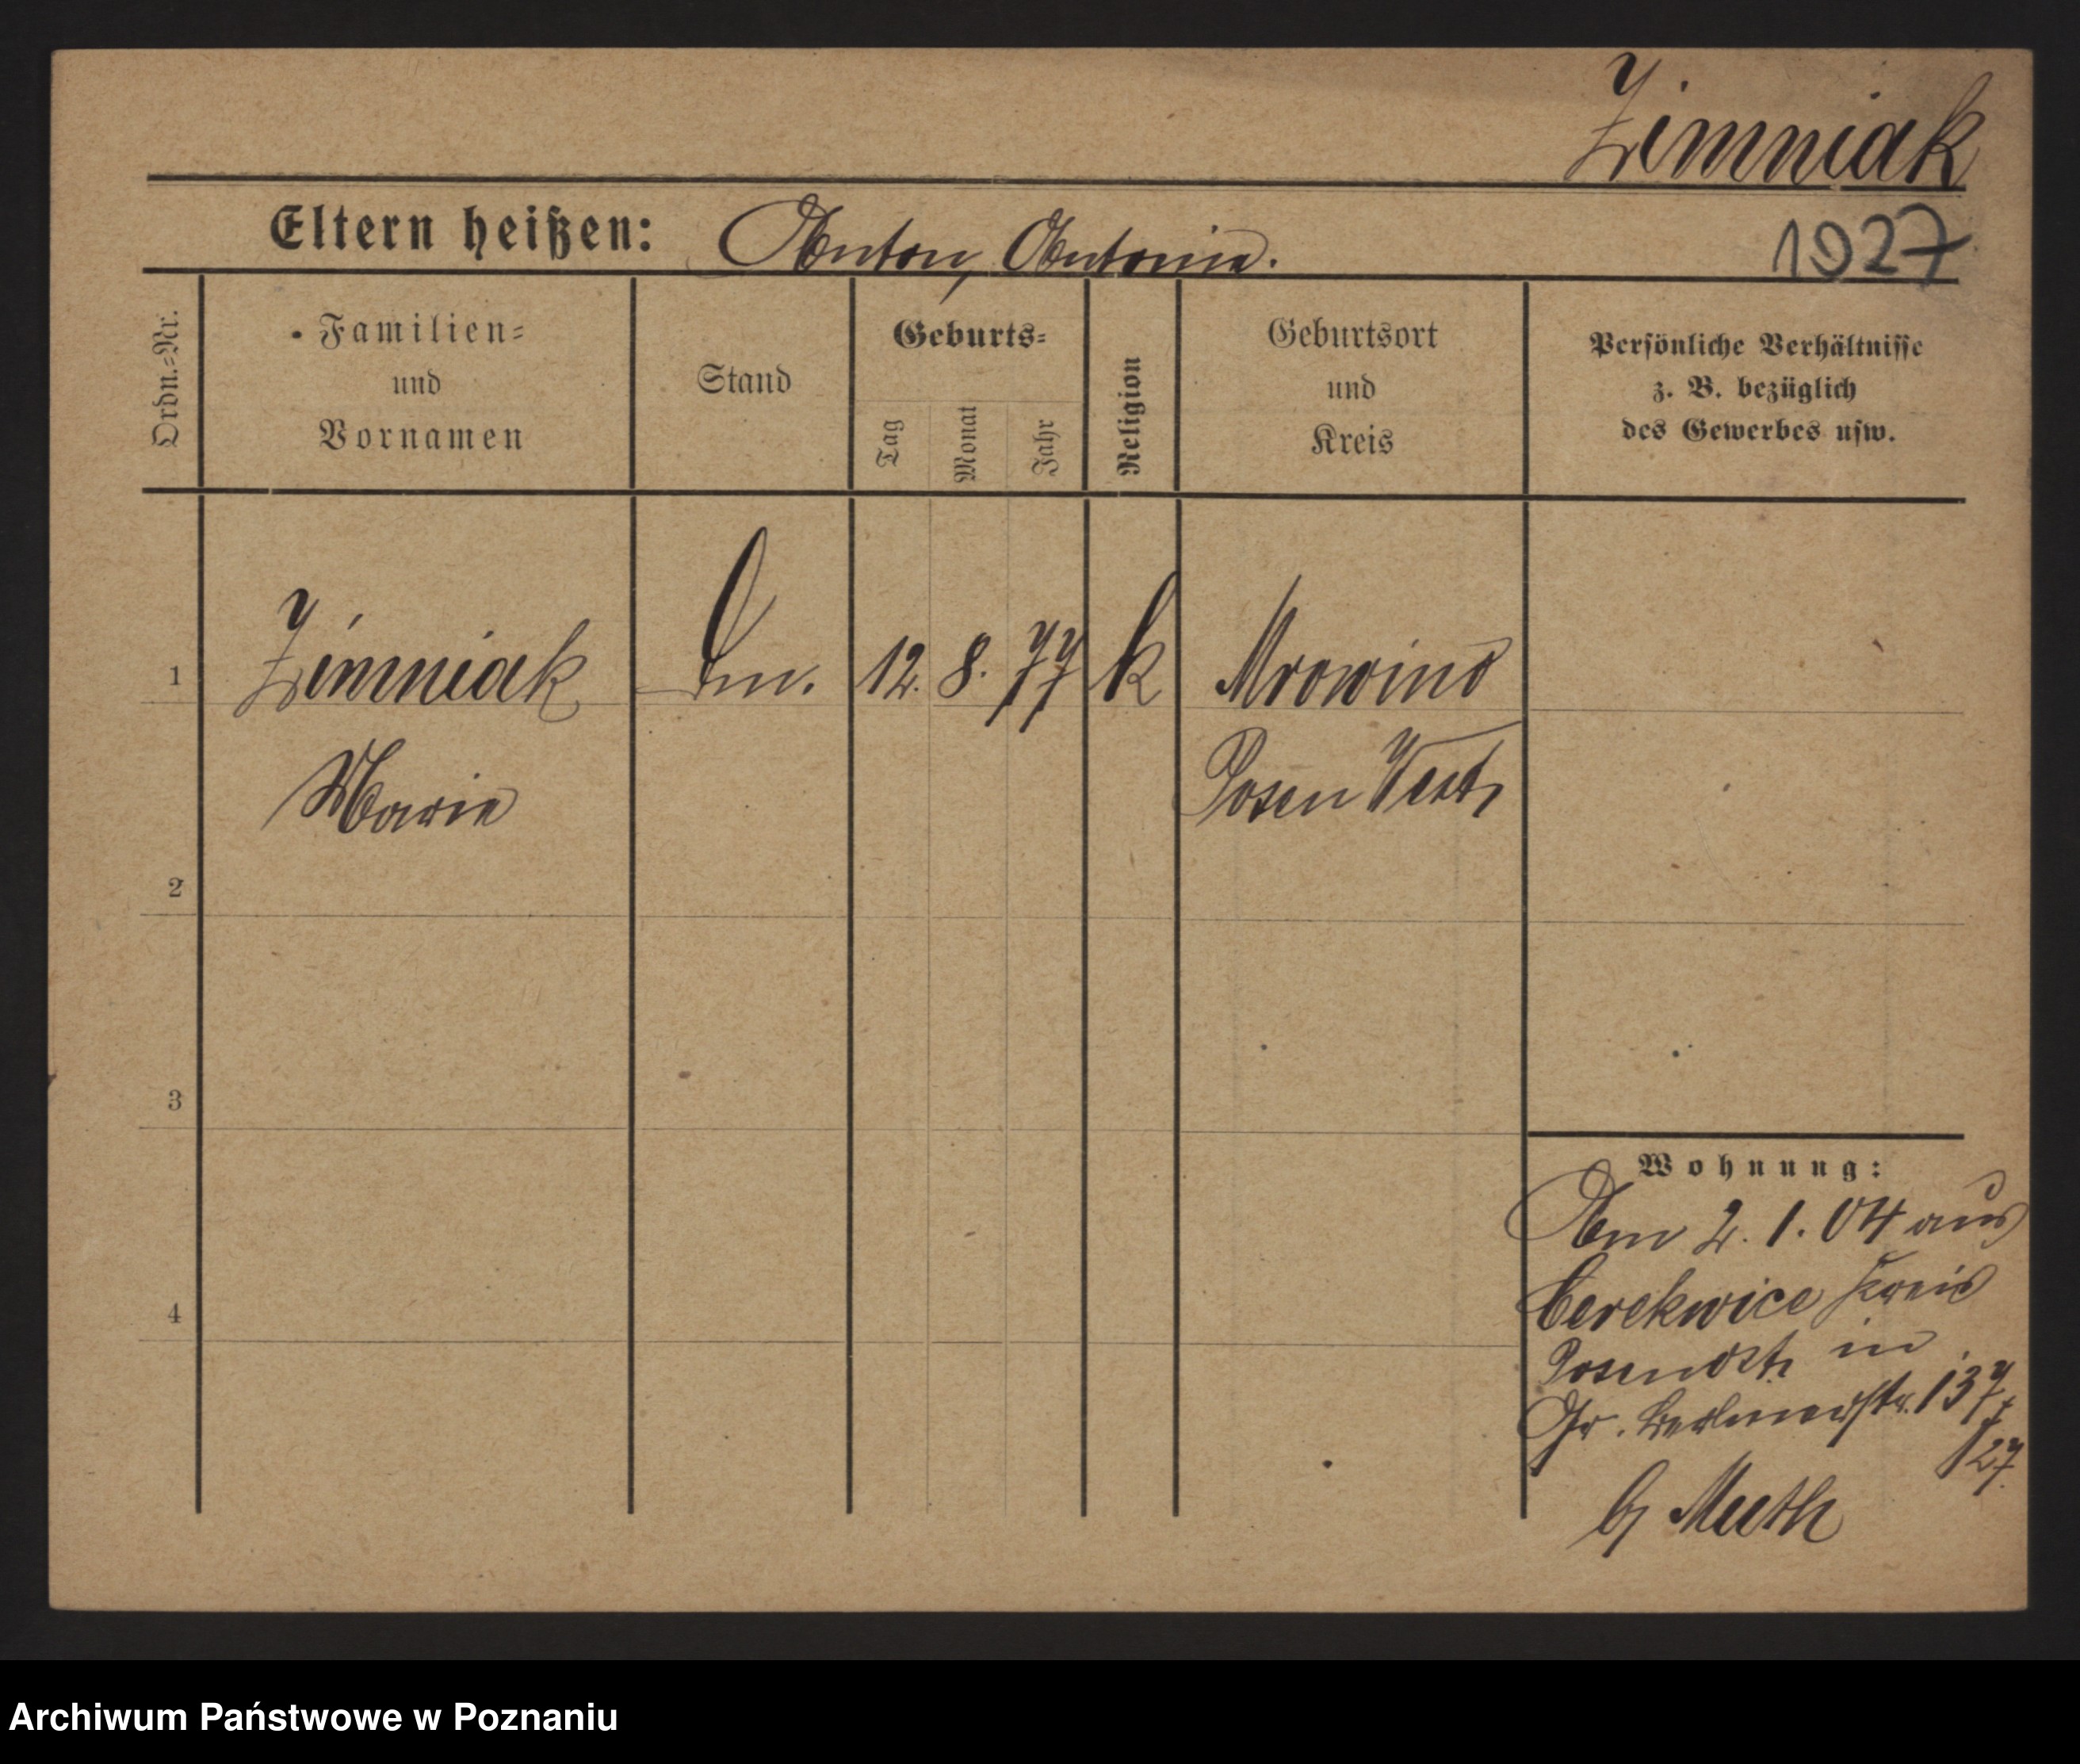 Zimniak
Eltern heißen: Anton, Antonie.
1927
Ordn.-Nr.
Familien- und Vornamen
Stand
Geburts-
Tag
Monat
Jahr
Religion
Geburtsort und Kreis
Persönliche Verhältnisse
z. B. bezüglich
des Gewerbes usw.
1 Zimniak 12. 8. 77 k Mrowino
Marie Posen West
2
3
4
Wohnung:
Am 2. 1. 04 aus
Cerekwice Kreis
Posen Ost, in
Gr. Berlinerstr. 137,
127
b/ Muth
Archiwum Państwowe w Poznaniu